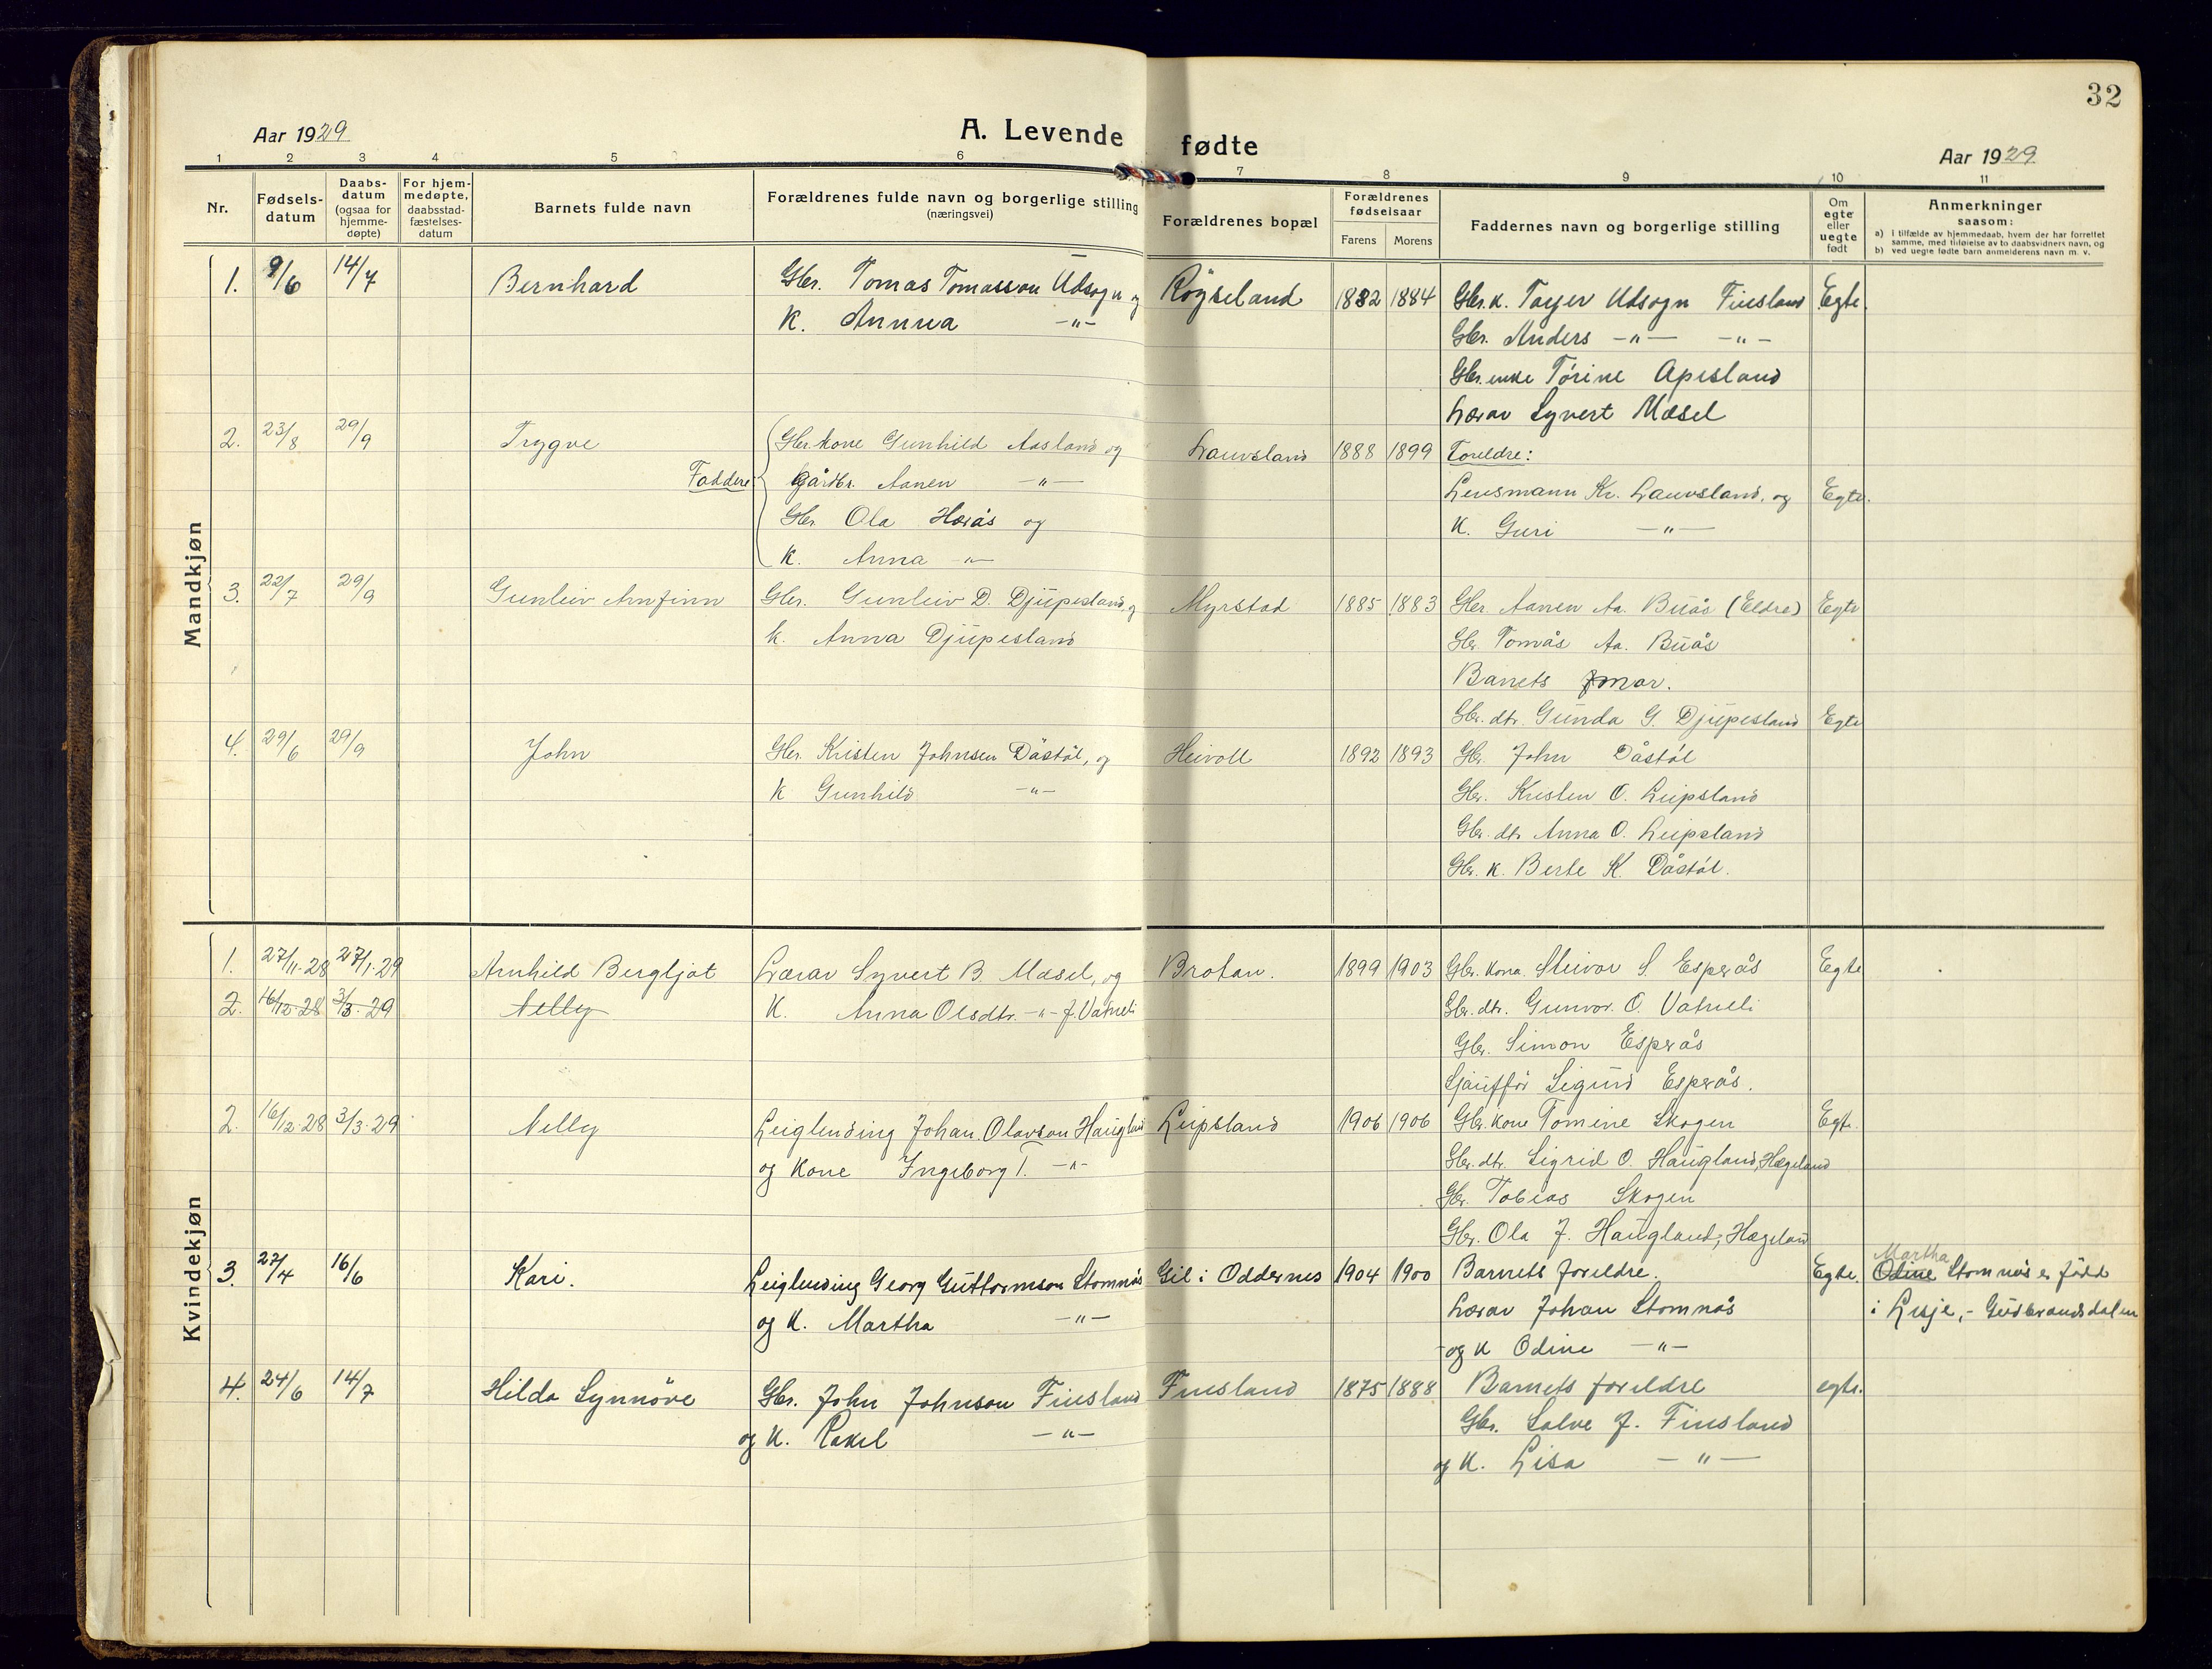 32
Aar 1929
A. Levende fødte
Aar 1929
1 2 3 4 5 6 7 8 9 10 11
Nr.
Fødsels-
datum
Daabs-
datum
(ogsaa for
hjemme-
døpte)
For hjem-
medøpte,
daabsstad-
fæstelses-
datum
Barnets fulde navn
Forældrenes fulde navn og borgerlige stilling
(næringsvei)
Forældrenes bopæl
Forældrenes
fødselsaar
Farens Morens
Faddernes navn og borgerlige stilling
Om
egte
eller
uegte
født
Anmerkninger
saasom:
a) i tilfælde av hjemmedaab, hvem der har forrettet
samme, med tilføielse av to daabsvidners navn, og
b) ved uegte fødte barn anmelderens navn m. v.
Mandkjøn
1. 9/6 14/7 Bernhard Gbr. Tomas Tomasson Udsogn og Röyseland 1882 1884 Gbr. k. Tayer Udsogn Finsland Egte.
K. Annna -"- Gbr. Anders -"- -"-
Gbr. enke Törine Apesland
Lærar Syvert Mæsel
2. 23/8 29/9 Trygve Gbr. kone Gunhild Aasland og Lauvsland 1888 1899 Foreldre:
Faddere Gårdbr. Aanen -"- Lensmann Kr. Lauvsland, og Egte.
Gbr. Ola Heråas og K. Guri -"-
K. Anna -"-
3. 22/7 29/9 Gunleiv Arnfinn Gbr. Gunleiv D. Djupesland, og Myrstad 1885 1883 Gbr. Aanen Aa. Buås (Eldre) Egte
k. Anna Djupesland Gbr. Tomås Aa. Buås
Barnets mor.
Gbr. dtr. Gunda G. Djupesland Egte
4. 29/6 29/9 John Gbr. Kristen Johnsen Dåstöl, og Heivoll 1892 1893 Gbr. John Dåstöl
K Gunhild -"- Gbr. Kristen O. Leipsland
Gbr. dtr Anna O. Leipsland
Gbr. k. Berte K. Dåstöl.
Kvindekjøn
1. 27/11-28 27/1-29 Arnhild Bergljot Lærar Syvert B. Mæsel, og Brotan. 1899 1903 Gbr. kona Steivor S. Esperås Egte
2. 16/12-28 3/3-29 Nelly K. Anna Olsdtr. -"- f. Vatneli Gbr. dtr. Gunvor. O. Vatneli
Gbr. Simon Esperås
Sjåufför Sigurd Esperås.
2. 16/12-28 3/3-29 Nelly Leiglending Johan Olavson Haugland Leipsland 1906 1906 Gbr. kone Tomine Skogen Egte.
og Kone Ingeborg T. -"- Gbr. dtr. Sigrid O. Haugland, Hægeland
Gbr. Tobias Skogen
Gbr. Ola J. Haugland, Hægeland
3. 27/4 16/6 Kari. Leiglending Georg Guttormson Stomnås Gil i Oddernes 1904 1900 Barnets foreldre. Egte. Odine Martha Stomnås er född
og K. Martha -"- Lærar Johan Stomnås i Lesje, - Gudbrandsdalen
og K Odine -"-
4. 24/6 14/7 Hilda Synnöve Gbr. John Johnson Finsland Finsland 1875 1888 Barnets foreldre egte.
og K. Rakel -"- Gbr. Salve J. Finsland
og K. Lisa -"-